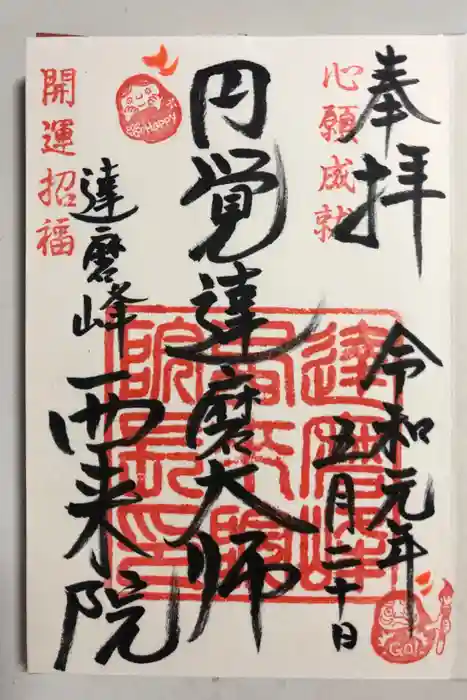 奉拝
心願成就
令和元年
五月二十日
円覚達磨大師
達磨峰
西来院
開運招福
Happy
GO!